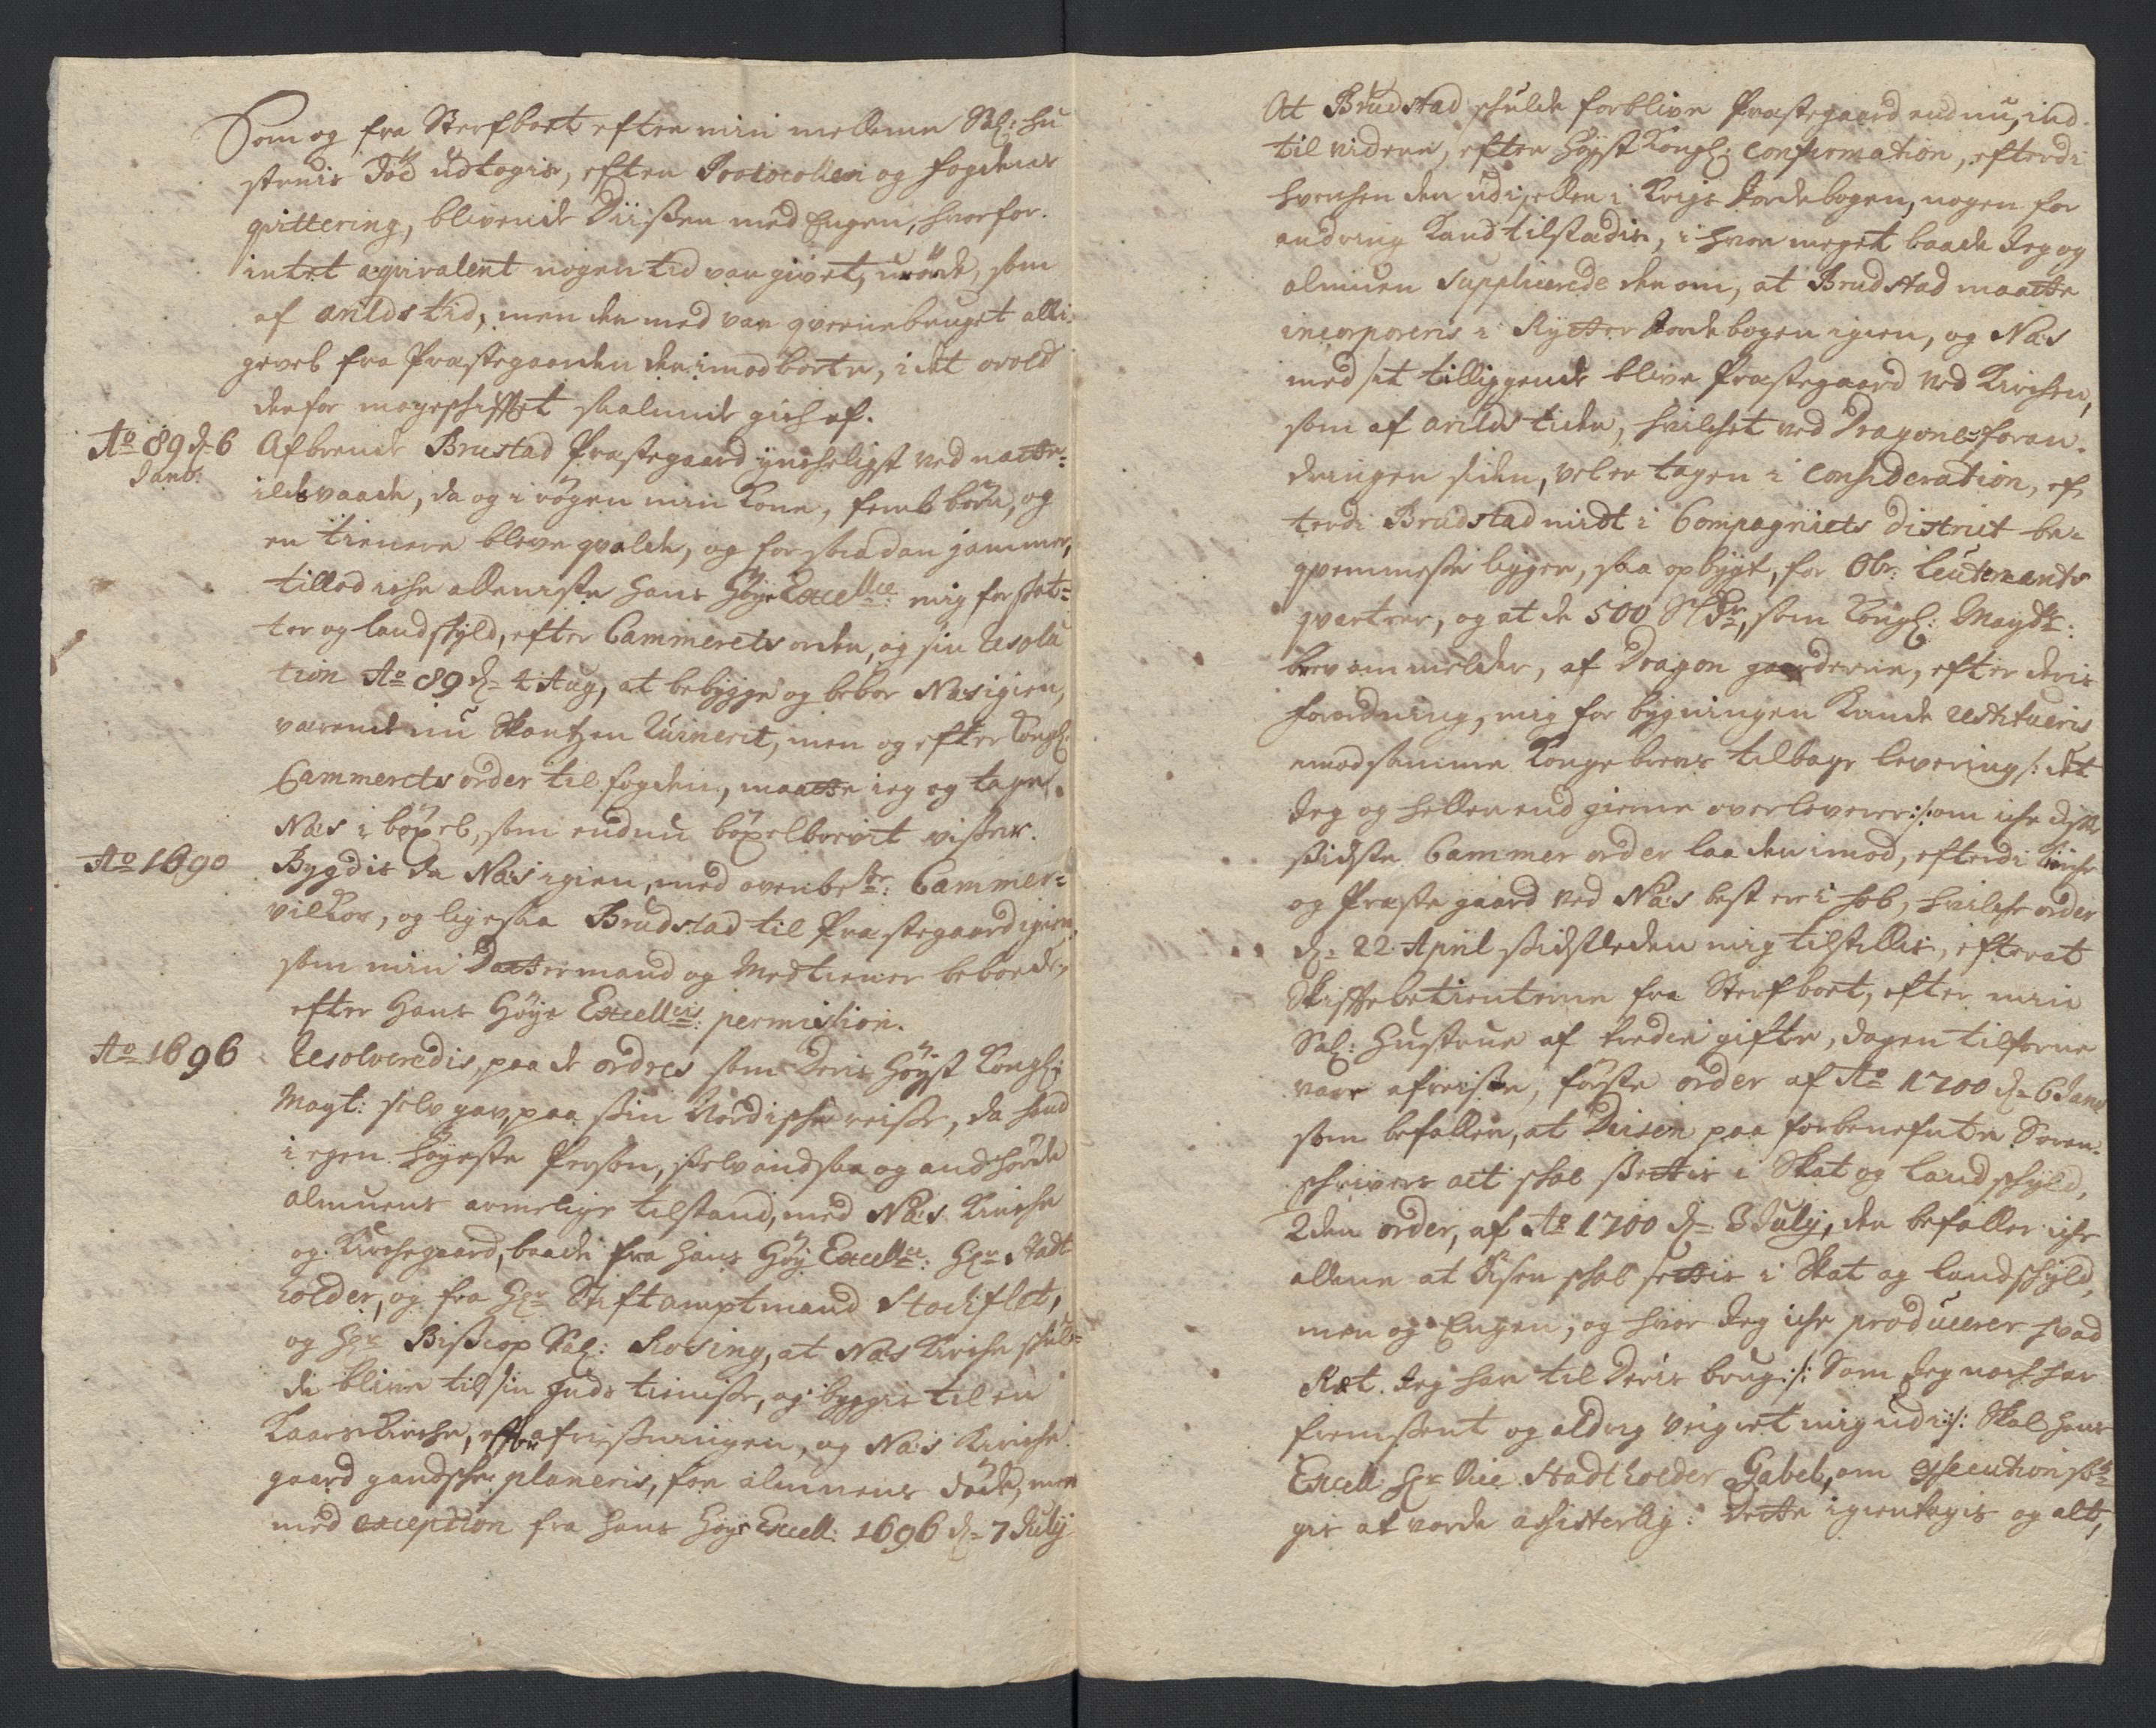 Som og fra Sterfboet efter min mellemm Sal: hu
struis Død udtogis, efter Protocollen og fogdens
qvittering, blivende Diissen med Engen, hvorfor
intet æqvivalent nogen tid var givet, urørde, som
af arilds tid, men der med var qvernebruget alli-
gevel fra Præstegaarden derimod borte, i det
derfor mageschifftet saaledis gich af.
Ao 89 d. 6
Janv:
Afbrende Brustad Præstegaard ynckeligst ved natte-
ildsvaade, da og i røgen min Kone, femb børn, og
en tienere bleve qvalde, og for saadan jammer,
tillod iche alleniste hans Høye Excellce mig for skat-
ter og landskyld, efter Cammerets orden, og sin Resolu
tion Ao 89 d. 4 Aug, at bebygge og beboe Næs igien,
værende nu Skantzen Ruinerit, men og efter Kongl:
Cammerets order til fogden, maatte ieg og tage
Næs i bøxel, som endnu bøxelbrevit visser.
Ao 1690
Bygdis da Næs igien, med ovenbete: Cammer-
vilkor, og ligesaa Brudstad til Præstegaard igien,
som min Dattermand og Medtiener beboede,
efter Hans Høye Excellces: permission.
Ao 1696
Resolveredis, paa de ordres som Deris Høyst Kongl:
Mayt: selv gav, paa sin Nordische reise, da hand
i egen høyeste Person, selv andsaa og anhørde
almuens armelige tilstand, med Næs Kirche
og Kirchegaard, baade fra hans Høy Excellce: Hr Stadt
holder, og fra Hr Stiftamptmand Stockflet,
og Hr Bisscop Sal: Rosing, at Næs Kirche skul-
de blive til sin Guds tieniste, og bygges til en
Kaarskirche, efter afrissningen, og Næs Kirche
gaard gandsche planeris, for almuens døde, men
med exception fra hans Høye Excell: 1696 d. 7 July
At Brudstad skulde forblive Præstegaard endnu, ind
til videre, efter Høyst Kongl: confirmation, efterdi
hverchen der udi, eller i Krigs Jordebogen, nogen for
andring Kand tilstædis, i hvor meget baade Jeg og
almuen Supplicerede der om, at Brudstad maatte
incorporeris i Rytter Jordebogen igien, og Næs
med sit tilliggende blive Præstegaard ved Kirchen,
som af arilds tiden, hvilchet ved Dragones foran-
dringen siden, vel er tagen i Consideration, ef-
terdi Brudstad midt i Compagniets District be-
qvemmeste ligger, saa opbygt, for Obr: Leutenants
qvarteer, og at de 500 Rdr, som Kongl: Maytts:
brev ommelder, af Dragon gaarderne, efter deris
forordning, mig for bygningen Kunde restitueris
imod samme Konge brevs tilbage levering /: det
Jeg og heller end gierne overleverer :/ om iche
sidste Cammer order laa derimod, efterdi Kirche
og Præste gaard ved Næs best er i hob, hvilche order
d. 22 April sidstleden mig tilstillis, efter at
Skiftebetienterne fra Sterfboet, efter min
Sal: Hustrue af tredie gifte, dagen tilforne
vare afreiste, første order af Ao 1700 d. 6 Janv
som befaller, at Diisen paa forbenefnte Soren-
schrivers act skal settis i Skat og Landschyld,
2den order, af Ao 1700 d. 3 July, der befaller iche
allene at Diisen skal settis i Skat og Landschyld,
men og Engen, og hvor Jeg iche producerer hvad
Ret. Jeg har til Deris brug :/: Som Jeg noch har
fremsent og aldrig veigret mig udi :/: Skal hans
Excell: Hr Vice Stadtholder Gabel, om Execution sø-
gis at vorde assisterlig: Dette igientagis og alt,